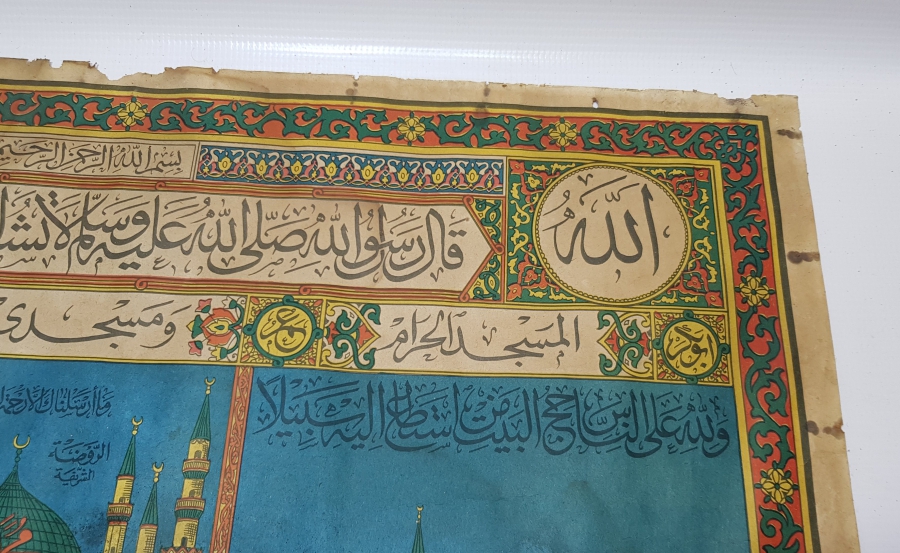 بسم الله الرحمن الرحيم
الله
قال رسول الله صلى الله عليه وسلم لا تشد
ابو بكر
المسجد الحرام
عمر
ومسجدي
ولله على الناس حج البيت من استطاع اليه سبيلا
وما أرسلناك الا رحمة
الروضة
الشريفة